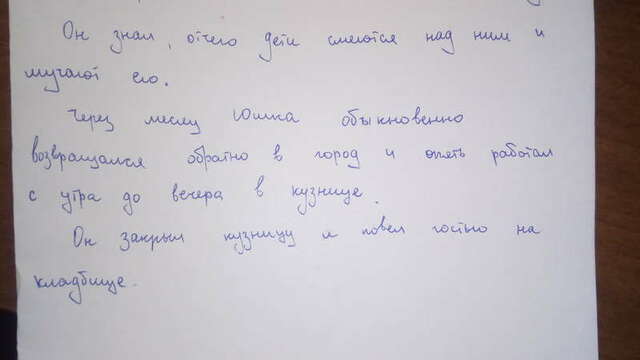 Он знал, отчего дети смеются над ним и
мучают его.
Через месяц Юшка обыкновенно
возвращался обратно в город и опять работал
с утра до вечера в кузнице.
Он закрыл кузницу и повел гостью на
кладбище.